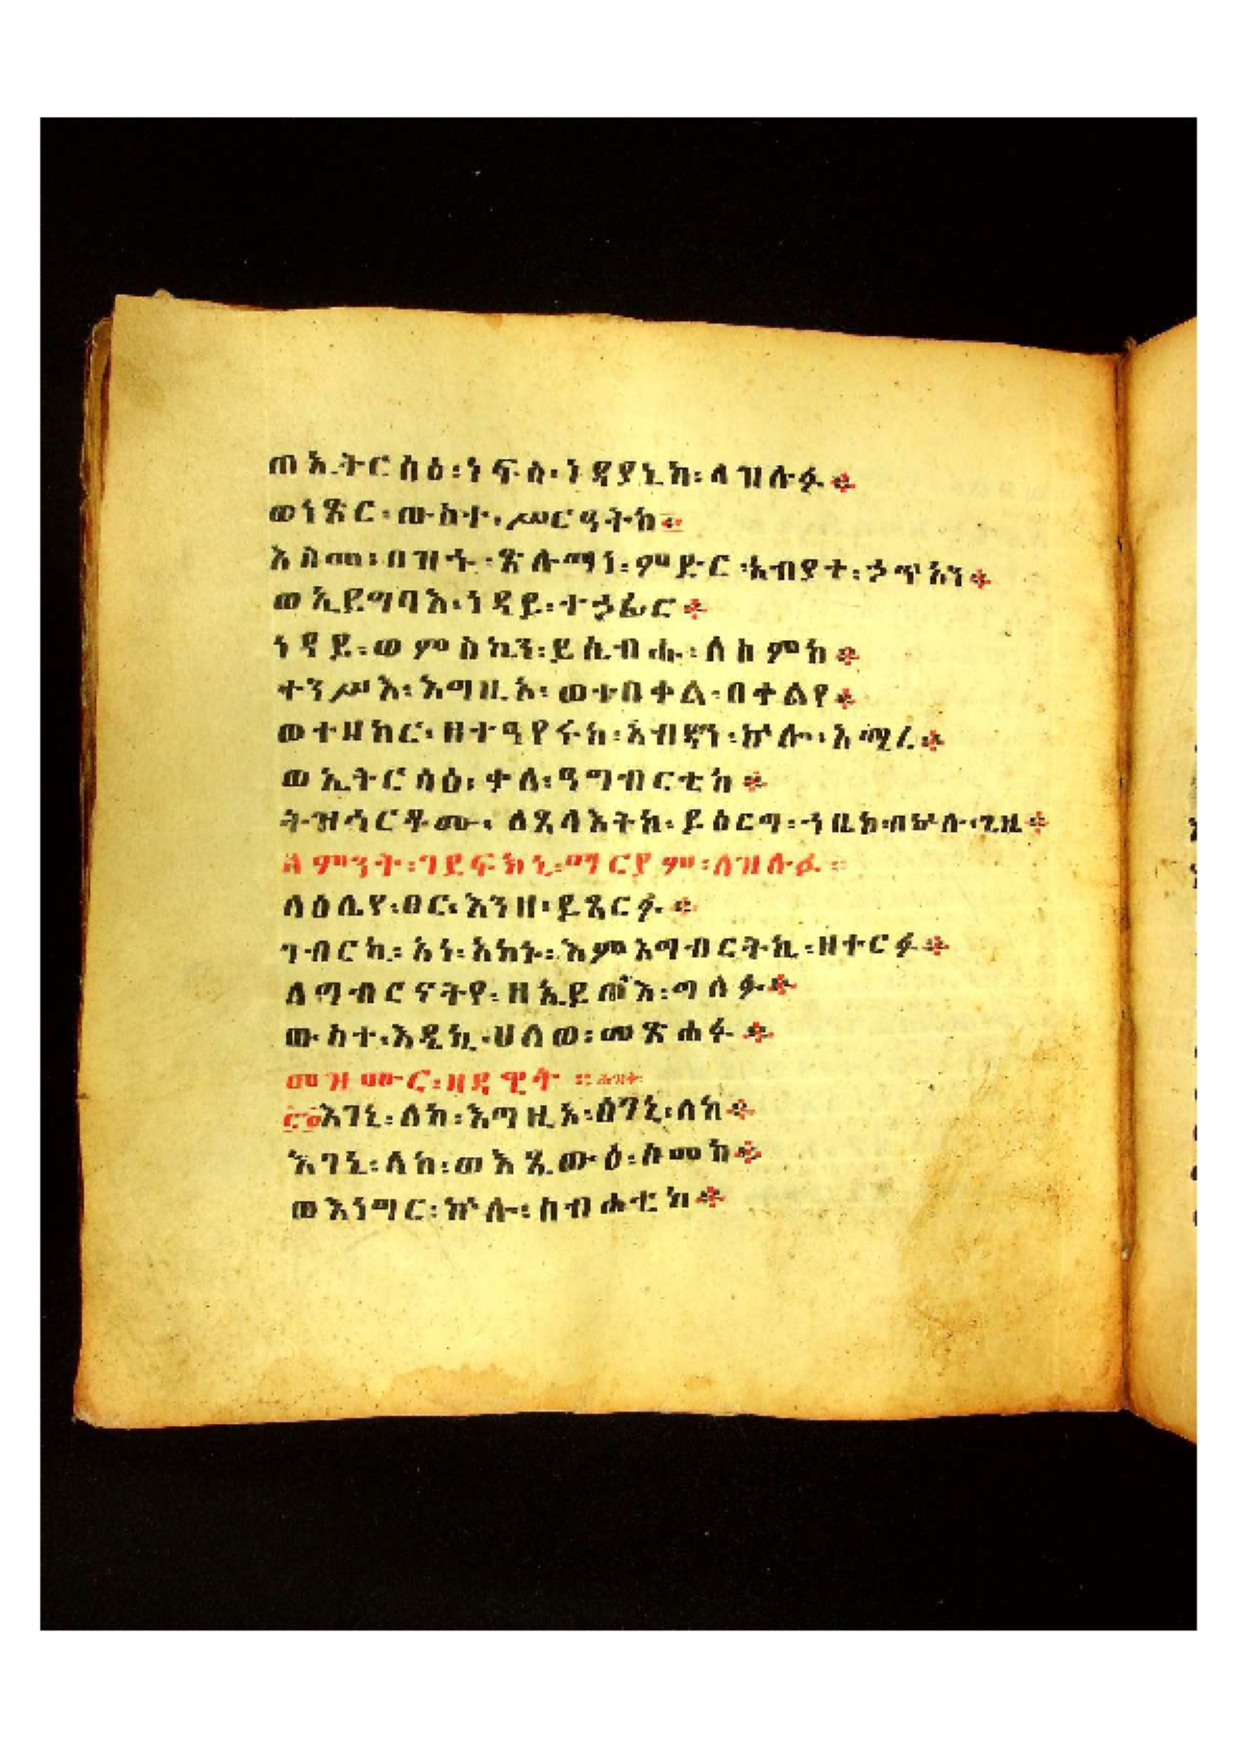 ጠኢትርስዕ፡ነፍሰ፡ነዳያኒከ፡ለዝሉፉ።
ወነጽር፡ውስተ፡ሥርዓትከ።
እስመ፡በዝኁ፡ጽሉማነ፡ምድር፡አብያተ፡ኃጥአን።
ወኢይግባእ፡ነዳይ፡ተኃፊሮ።
ነዳይ፡ወምስኪን፡ይሴብሑ፡ለስምከ።
ተንሥእ፡እግዚኦ፡ወተበቀል፡በቀልየ።
ወተዘከር፡ዘተዓየሩከ፡አብዳን፡ኵሎ፡አሚረ።
ወኢትርሳዕ፡ቃለ፡ዓግብርቲከ።
ትዝኅርቶሙ፡ለጸላእትከ፡ይዕርግ፡ኀቤከ፡በኵሉ፡ጊዜ።
ለምንት፡ገደፍክኒ፡ማርያም፡ለዝሉፉ።
ላዕሌየ፡ፀር፡እንዘ፡ይጼርፉ።
ገብርኪ፡አነ፡አኮኑ፡እምአግብርትኪ፡ዘተርፉ።
ለግብርናትየ፡ዘኢይመጽእ፡ጣለፉ።
ውስተ፡እዴኪ፡ሀለወ፡መጽሐፉ።
መዝሙር፡ዘዳዊት።
እገኒ፡ለከ፡እግዚኦ፡ዕገኒ፡ለከ።
እገኒ፡ለከ፡ወእጼውዕ፡ስመከ።
ወእነግር፡ኵሎ፡ስብሐቲከ።